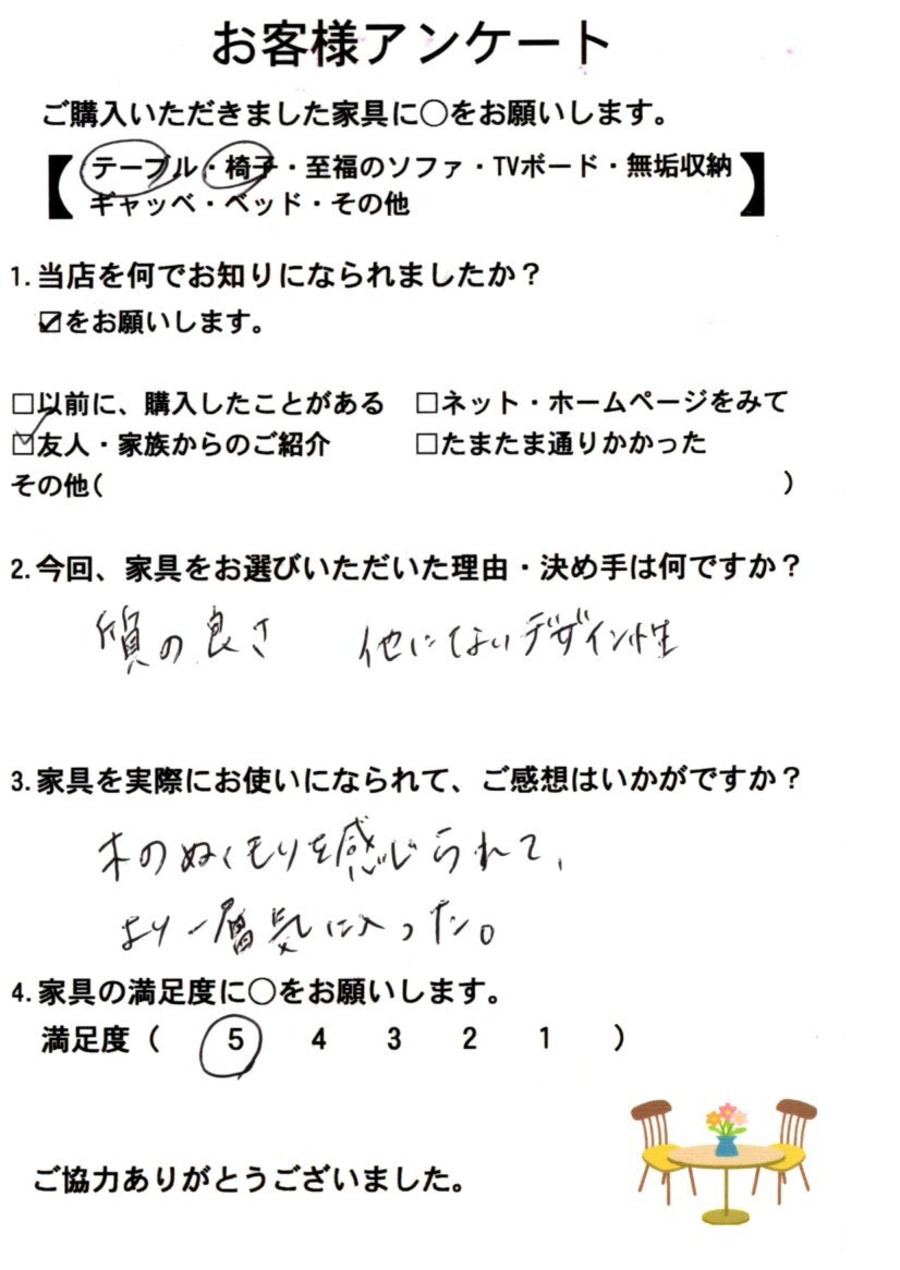 お客様アンケート
ご購入いただきました家具に○をお願いします。
【テーブル・椅子・至福のソファ・TVボード・無垢収納
ギャッベ・ベッド・その他】
1.当店を何でお知りになられましたか？
☑をお願いします。
□以前に、購入したことがある □ネット・ホームページをみて
☑友人・家族からのご紹介 □たまたま通りかかった
その他( )
2.今回、家具をお選びいただいた理由・決め手は何ですか？
質の良さ 他にないデザイン性
3.家具を実際にお使いになられて、ご感想はいかがですか？
木のぬくもりを感じられて、
より一層気に入った。
4.家具の満足度に○をお願いします。
満足度( 5 4 3 2 1 )
ご協力ありがとうございました。